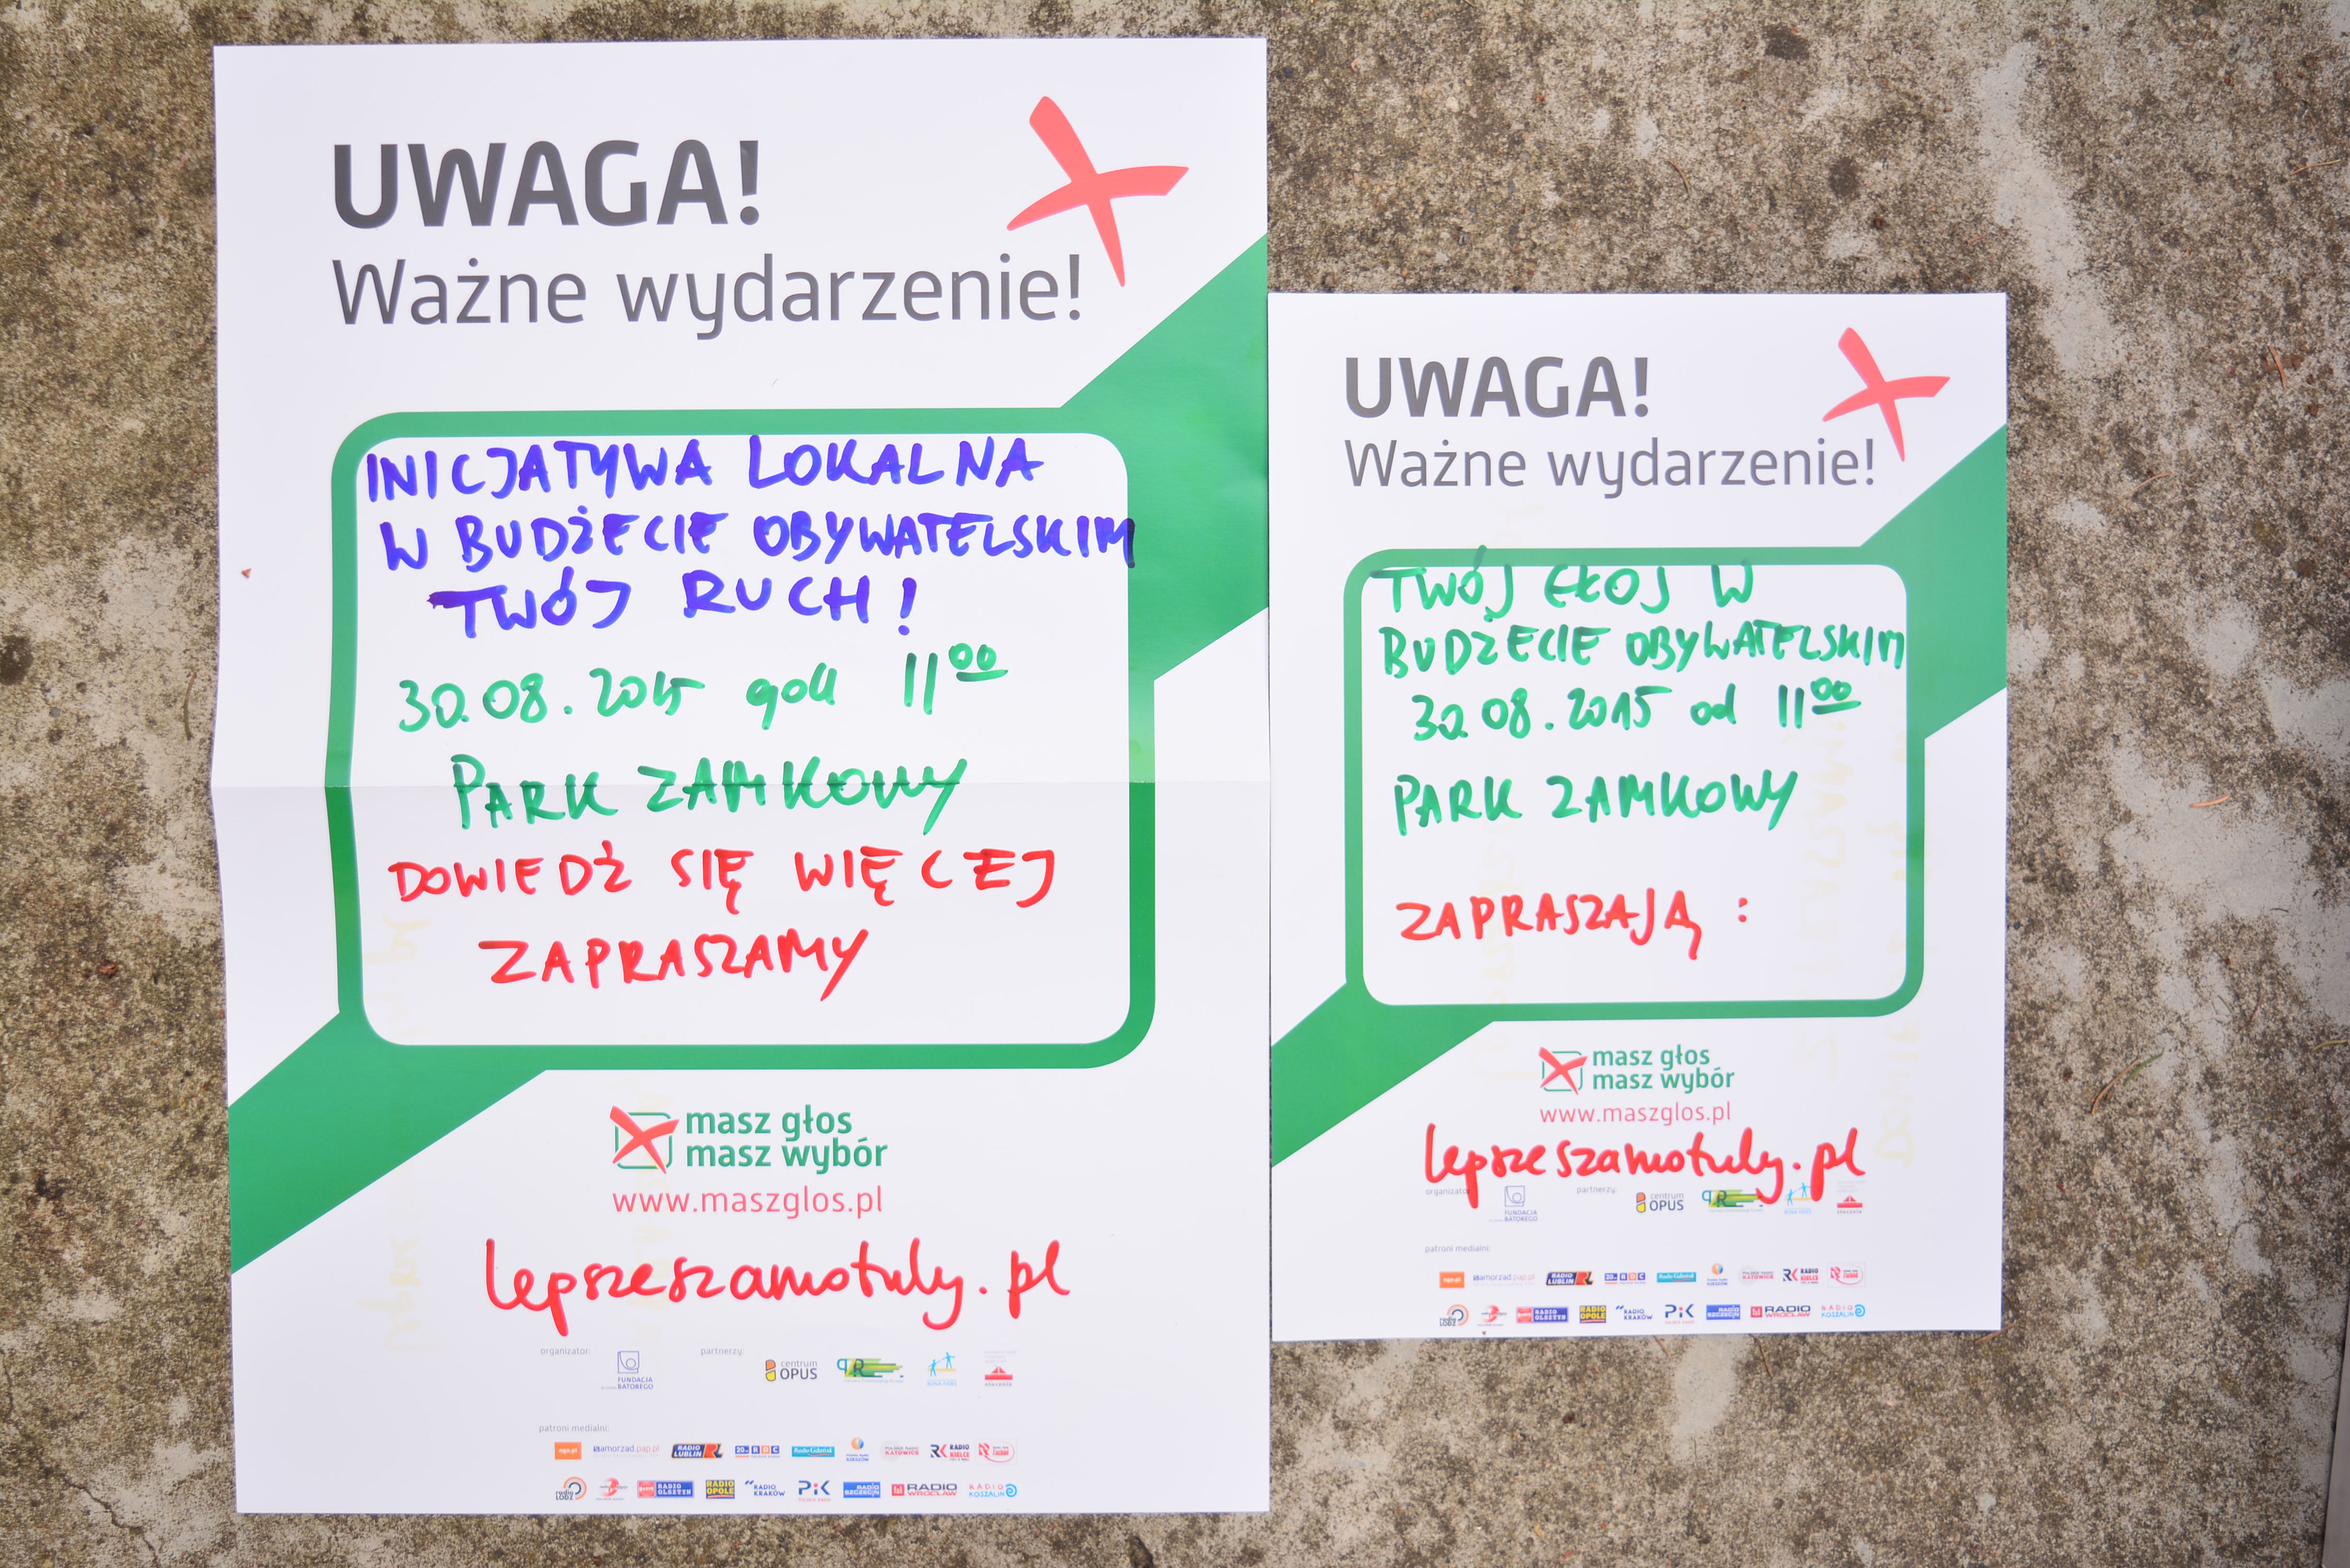 UWAGA!
Ważne wydarzenie!
INICJATYWA LOKALNA
W BUDŻECIE OBYWATELSKIM
TWÓJ RUCH!
30.08.2015 godz 11⁰⁰
PARK ZAMKOWY
DOWIEDŹ SIĘ WIĘCEJ
ZAPRASZAMY
masz głos
masz wybór
www.maszglos.pl
lepszeszamotuly.pl
organizator:
partnerzy:
FUNDACJA
BATOREGO
centrum
OPUS
patroni medialni:
ngo.pl samorzad.pap.pl RADIO LUBLIN RL RDC Radio Gdańsk KATOWICE RK RADIO KIELCE
radio ŁÓDŹ RADIO OLSZTYN RADIO OPOLE RADIO KRAKÓW PiK RADIO SZCZECIN RADIO WROCŁAW RADIO KOSZALIN
UWAGA!
Ważne wydarzenie!
TWÓJ GŁOS W
BUDŻECIE OBYWATELSKIM
30.08.2015 od 11⁰⁰
PARK ZAMKOWY
ZAPRASZAJĄ:
masz głos
masz wybór
www.maszglos.pl
lepszeszamotuly.pl
organizator:
partnerzy:
FUNDACJA
BATOREGO
centrum
OPUS
patroni medialni:
ngo.pl samorzad.pap.pl RADIO LUBLIN RL RDC Radio Gdańsk KATOWICE RK RADIO KIELCE
radio ŁÓDŹ RADIO OLSZTYN RADIO OPOLE RADIO KRAKÓW PiK RADIO SZCZECIN RADIO WROCŁAW RADIO KOSZALIN